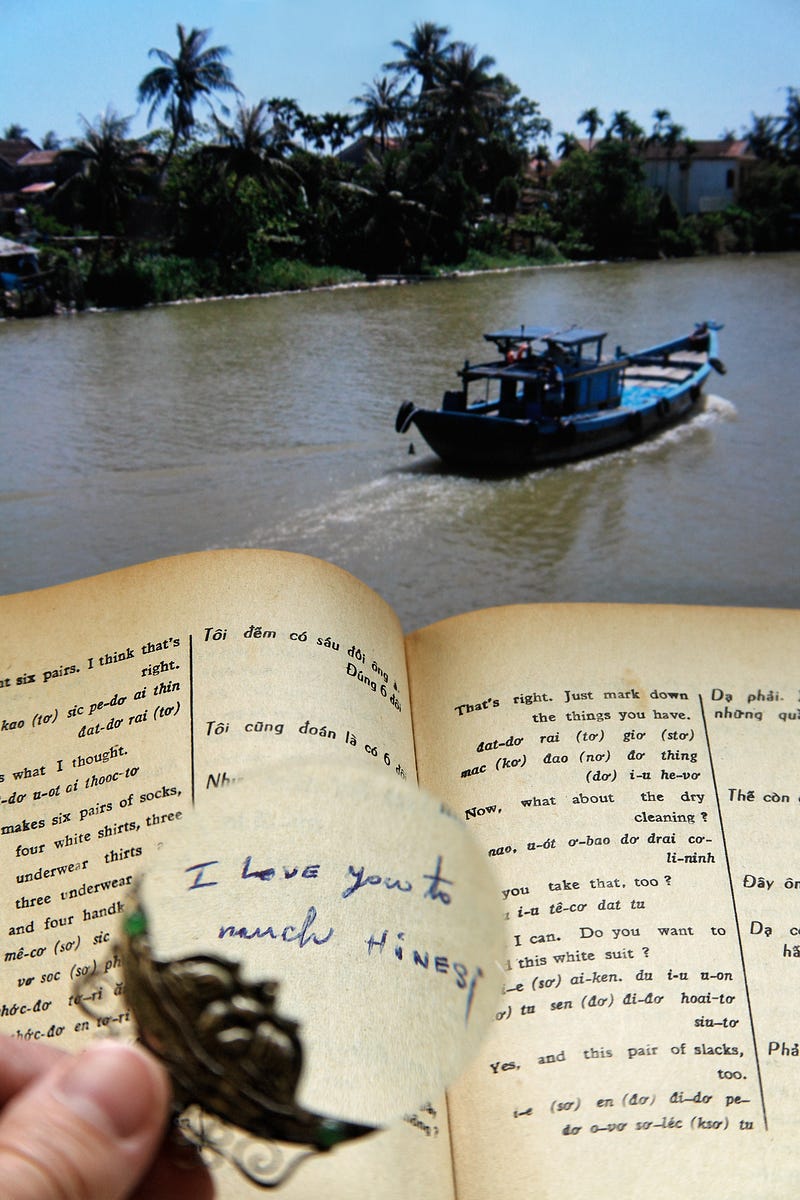 nt six pairs. I think that's
right.
kao (tơ) sic pe-dơ ai thin
đat-dơ rai (tơ)
s what I thought.
-dơ u-ot ai thooc-tơ
makes six pairs of socks,
four white shirts, three
underwear thirts
three underwear
and four handk
mê-cơ (sơ) sic
vơ soc (sơ) ph
en tơ-ri
Tôi đếm có sáu đôi ông ạ.
Đúng 6 đôi
Tôi cũng đoán là có 6 đôi
Như
I LOVE you to
much HINES
That's right. Just mark down
the things you have.
đat-dơ rai (tơ) giơ (stơ)
mac (kơ) đao (nơ) đơ thing
(dơ) i-u he-vơ
Now, what about the dry
cleaning ?
nao, u-ót ơ-bao dơ drai cơ-
li-ninh
you take that, too ?
i-u tê-cơ dat tu
I can. Do you want to
this white suit ?
i-e (sơ) ai-ken. du i-u u-on
ơ) tu sen (đơ) đi-dơ hoai-tơ
siu-tơ
Yes, and this pair of slacks,
too.
i-e (sơ) en (đơ) đi-dơ pe-
dơ o-vơ sơ-léc (ksơ) tu
Dạ phải.
những quầ
Thế còn
Đây ôn
Dạ có
hã
Phả